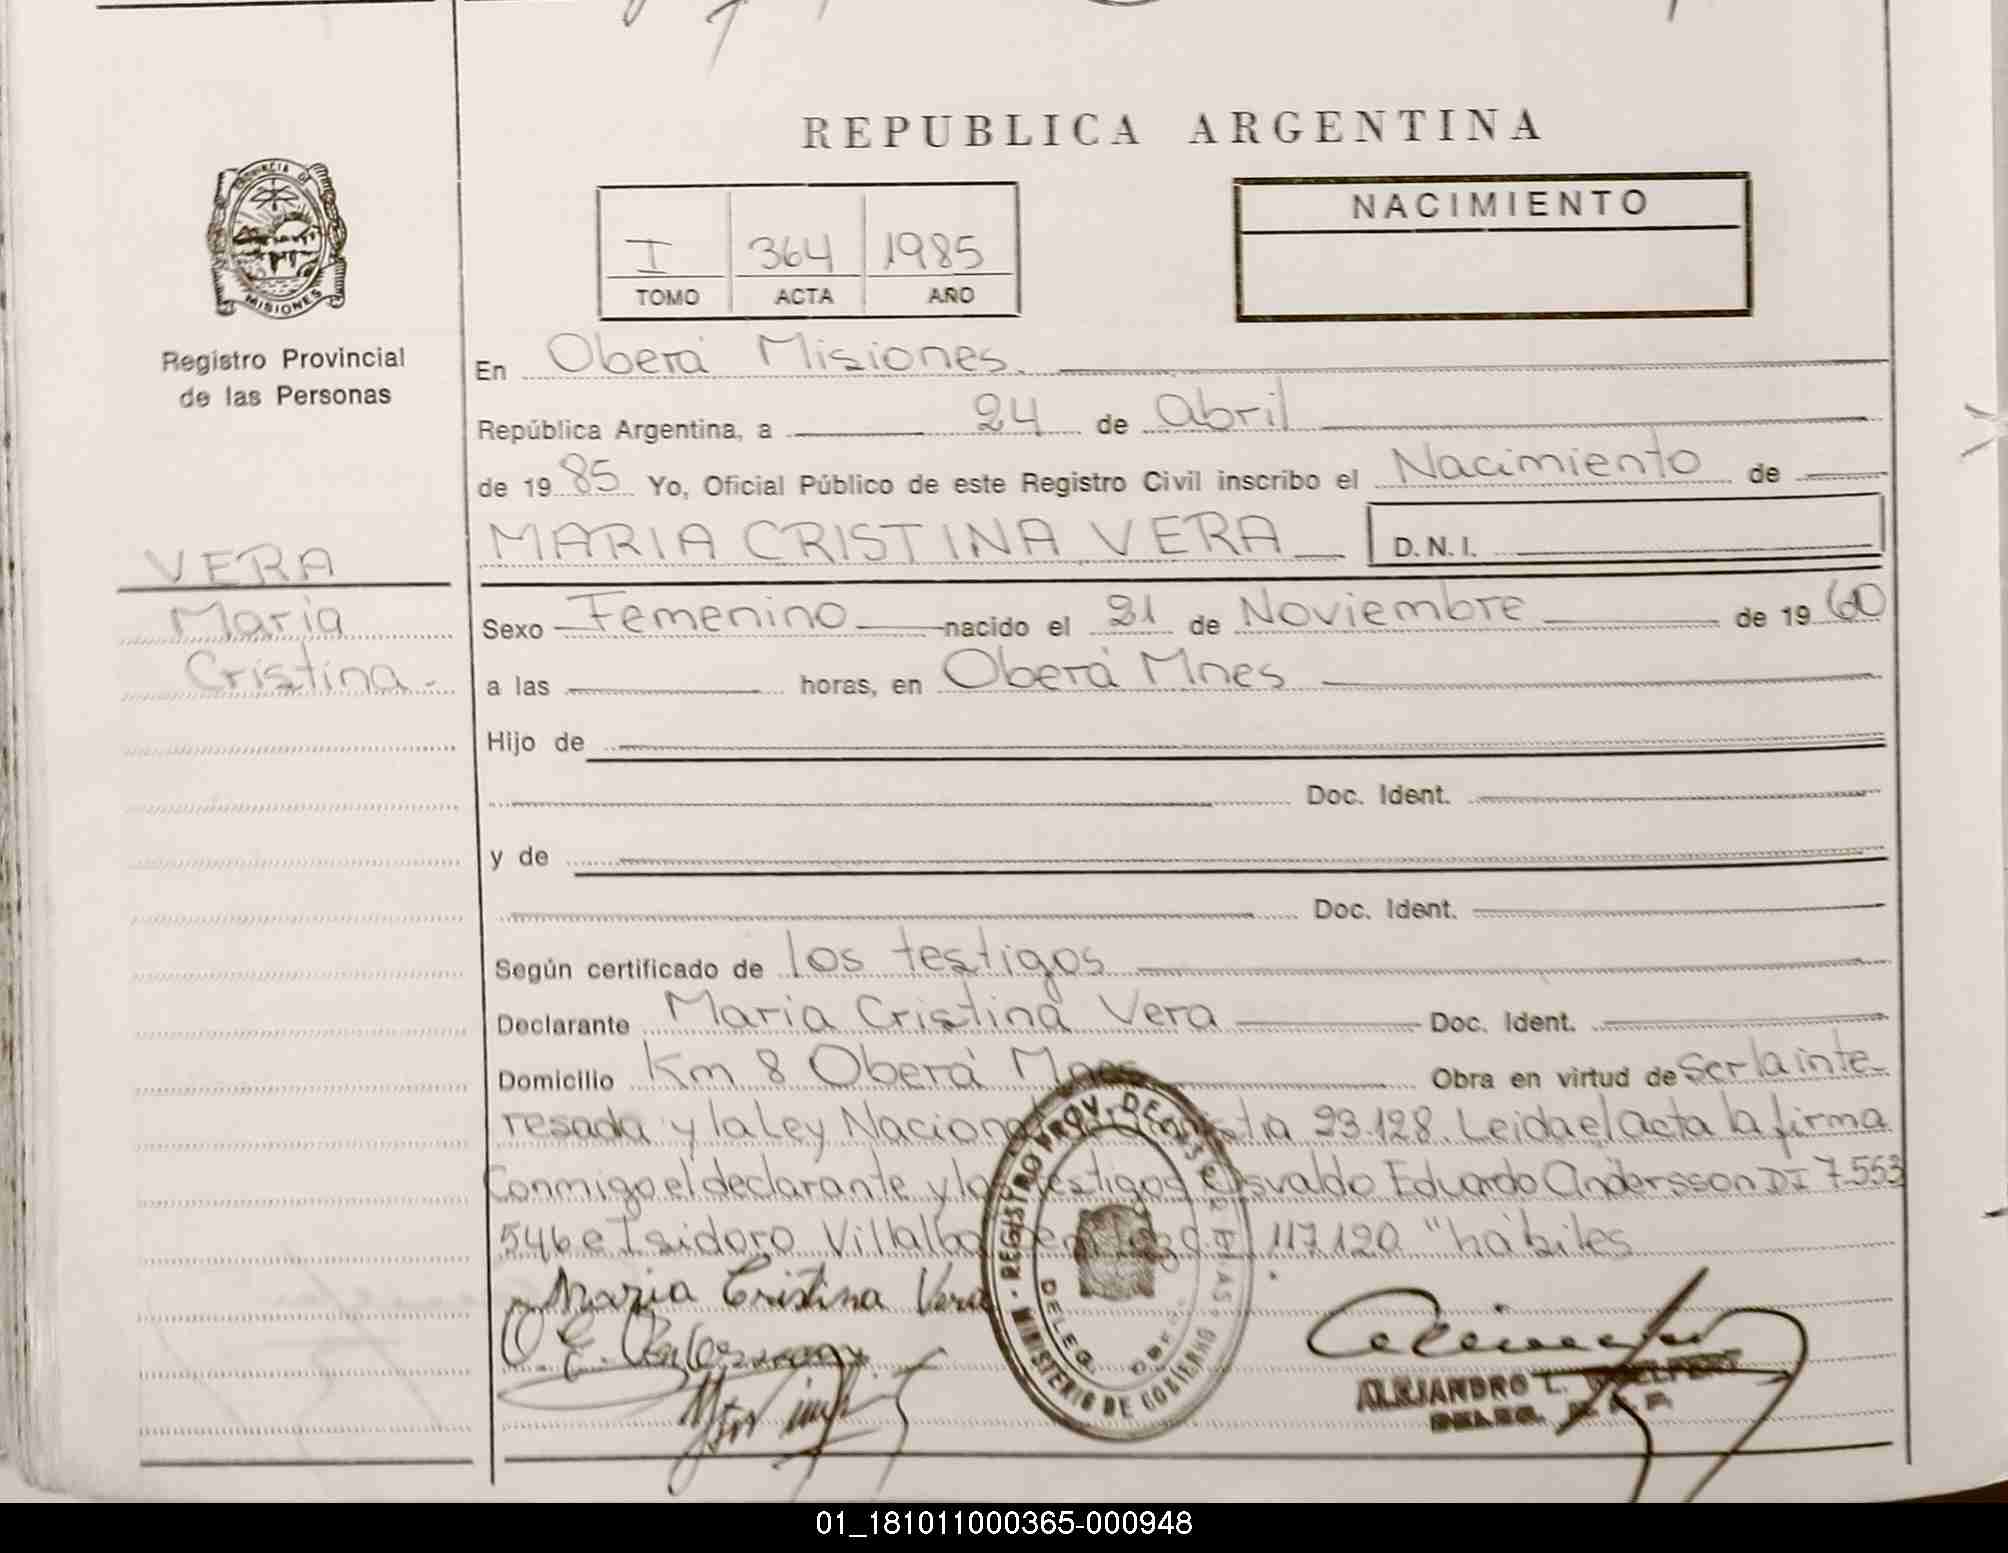 REPUBLICA ARGENTINA
PROVINCIA D
MISIONES
Registro Provincial
de las Personas
I 364 1985
TOMO ACTA AÑO
NACIMIENTO
En Oberá Misiones.
República Argentina, a 24 de Abril
de 19 85 Yo, Oficial Público de este Registro Civil inscribo el Nacimiento de
MARIA CRISTINA VERA D.N.I.
VERA
Maria
Cristina.-
Sexo Femenino nacido el 21 de Noviembre de 19 60
a las horas, en Oberá Mnes
Hijo de
Doc. Ident.
y de
Doc. Ident.
Según certificado de los testigos
Declarante Maria Cristina Vera Doc. Ident.
Domicilio Km 8 Oberá Mnes Obra en virtud de ser la inte
resada y la Ley Nacional 23.128. Leida el acta la firma
Conmigo el declarante y los testigos Osvaldo Eduardo Andersson DI 7.553
546 e Isidoro Villalba 117.120 "hábiles
Maria Cristina Vera
REGISTRO PROV. DE LAS PERSONAS
MINISTERIO DE GOBIERNO
DELEG.
ALEJANDRO L.
DELEG.
01_181011000365-000948